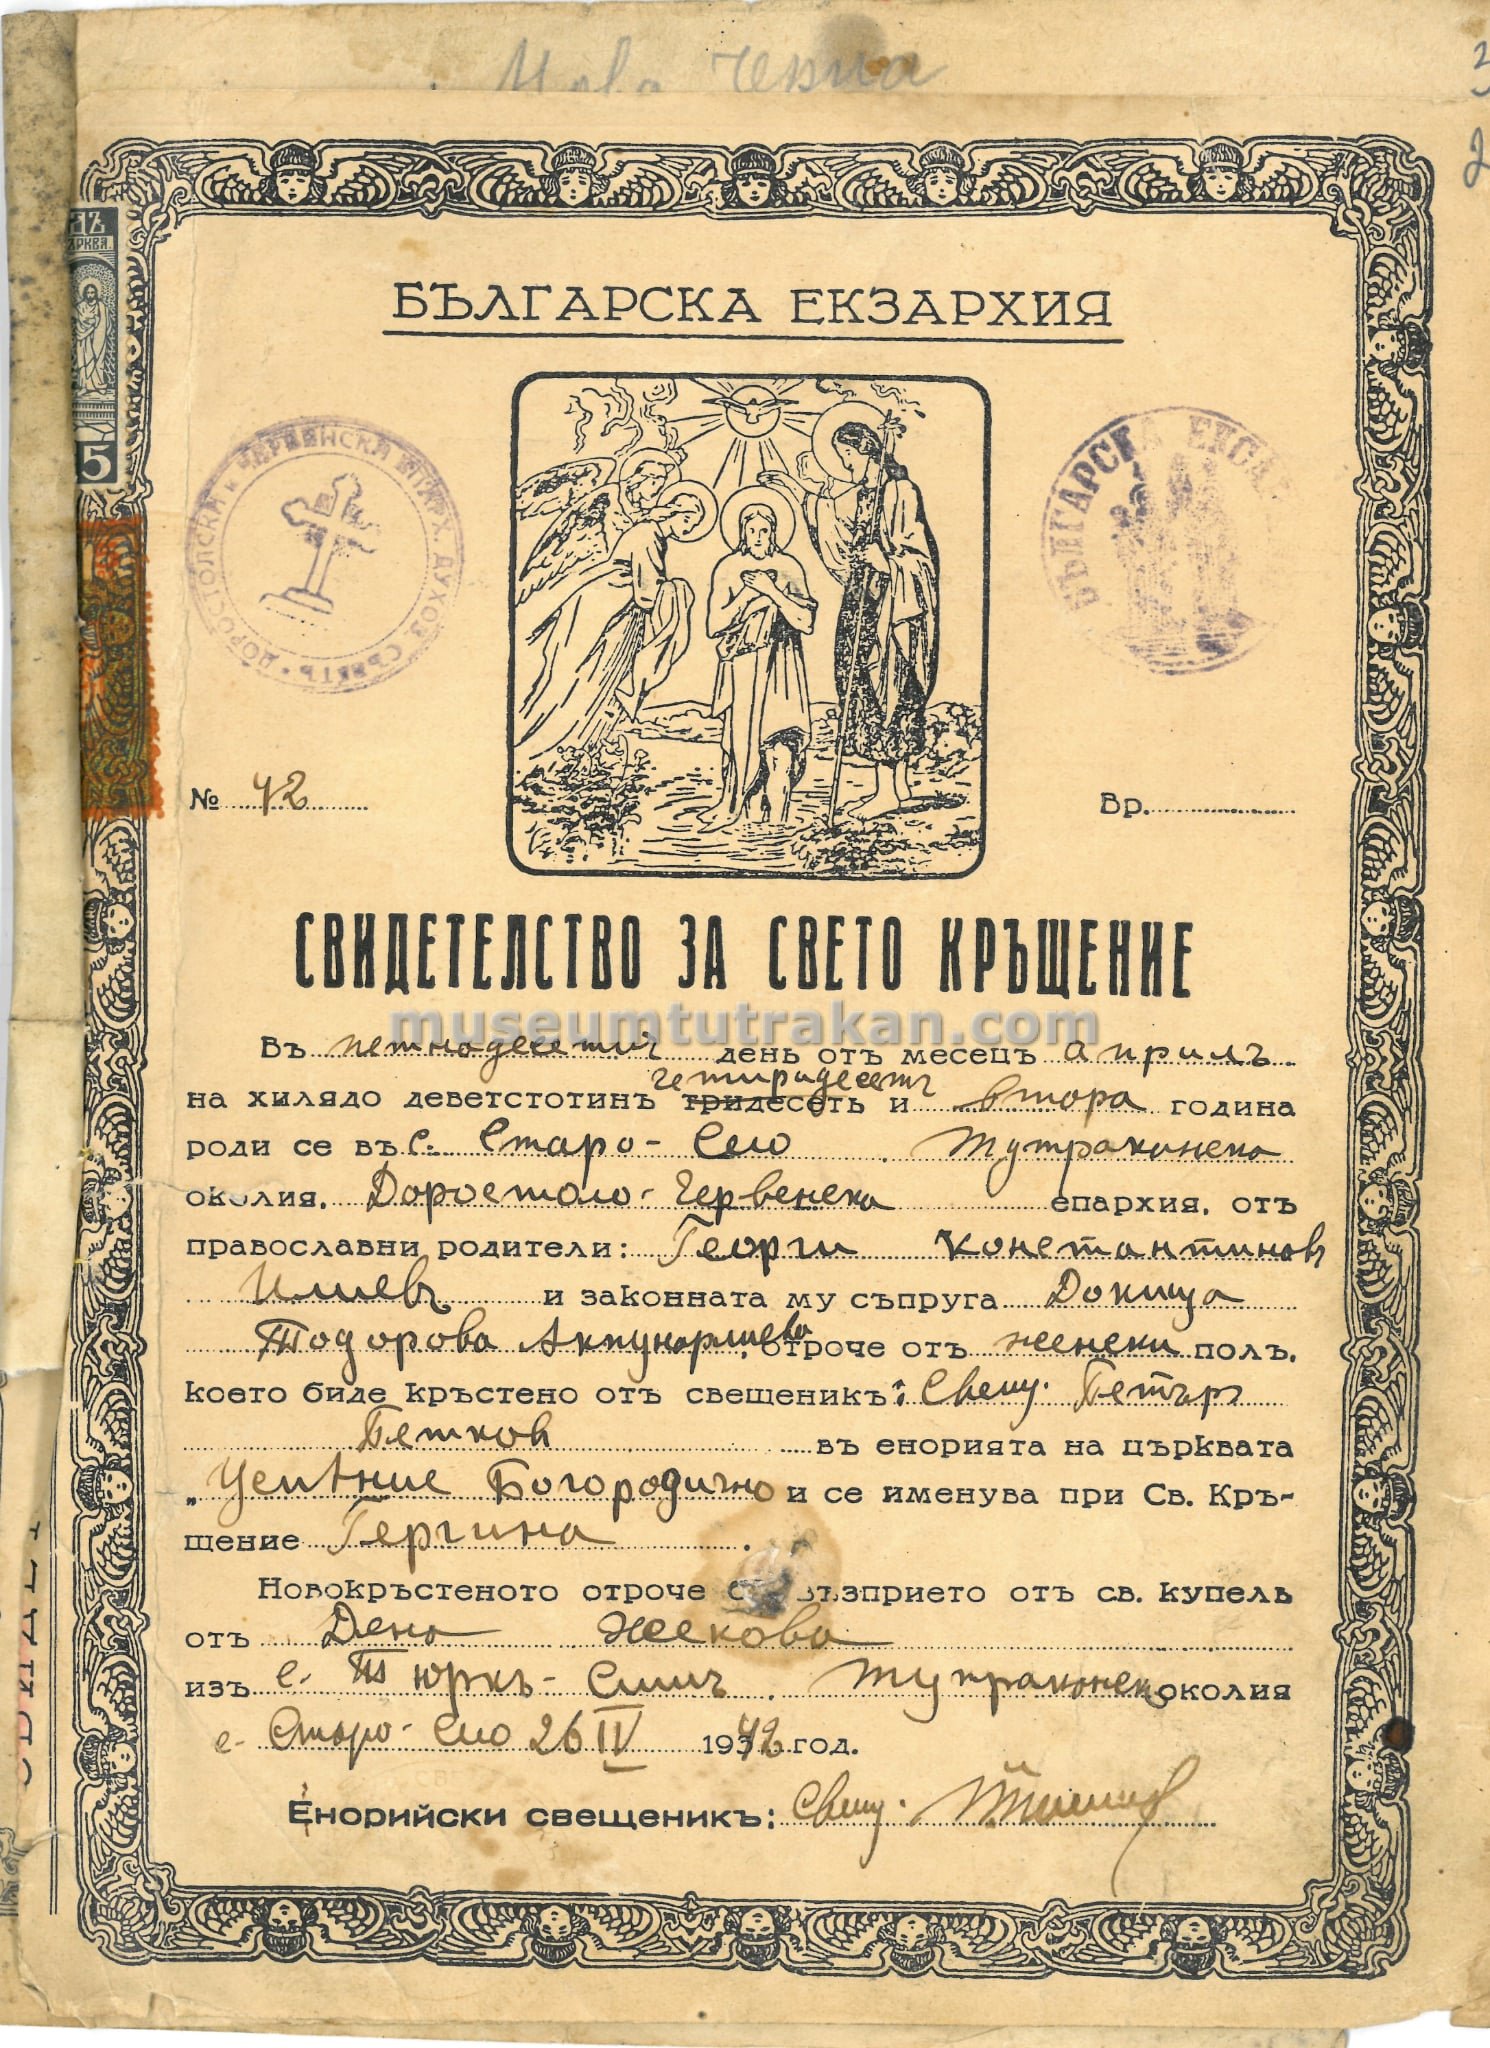 Нова Черна
БЪЛГАРСКА ЕКЗАРХИЯ
ДОРОСТОЛСКИ и ЧЕРВЕНСКИ ДУХОВ. СЪВЕТЪ
БЪЛГАРСКА
5
№ 42
Бр.
СВИДЕТЕЛСТВО ЗА СВЕТО КРЪЩЕНИЕ
museumtutrakan.com
Въ петнадесетий день отъ месецъ априлъ
четиридесеть
на хилядо деветстотинъ тридесеть и втора година
роди се въ с. Старо-Село Тутраканска
околия, Доростоло-Червенска епархия, отъ
православни родители: Георги Константиновъ
Илиевъ и законната му съпруга Докица
Тодорова отроче отъ женски полъ,
което биде кръстено отъ свещеникъ: Свещ. Петъръ
Петков въ енорията на църквата
"Успение Богородично и се именува при Св. Кръ-
щение Гергина.
Новокръстеното отроче се възприето отъ св. купель
отъ Дена Жекова
изъ с. Тюркъ-Смил. Тутраканска околия
с. Старо-Село 26 IV 1942 год.
Енорийски свещеникъ: Свещ.